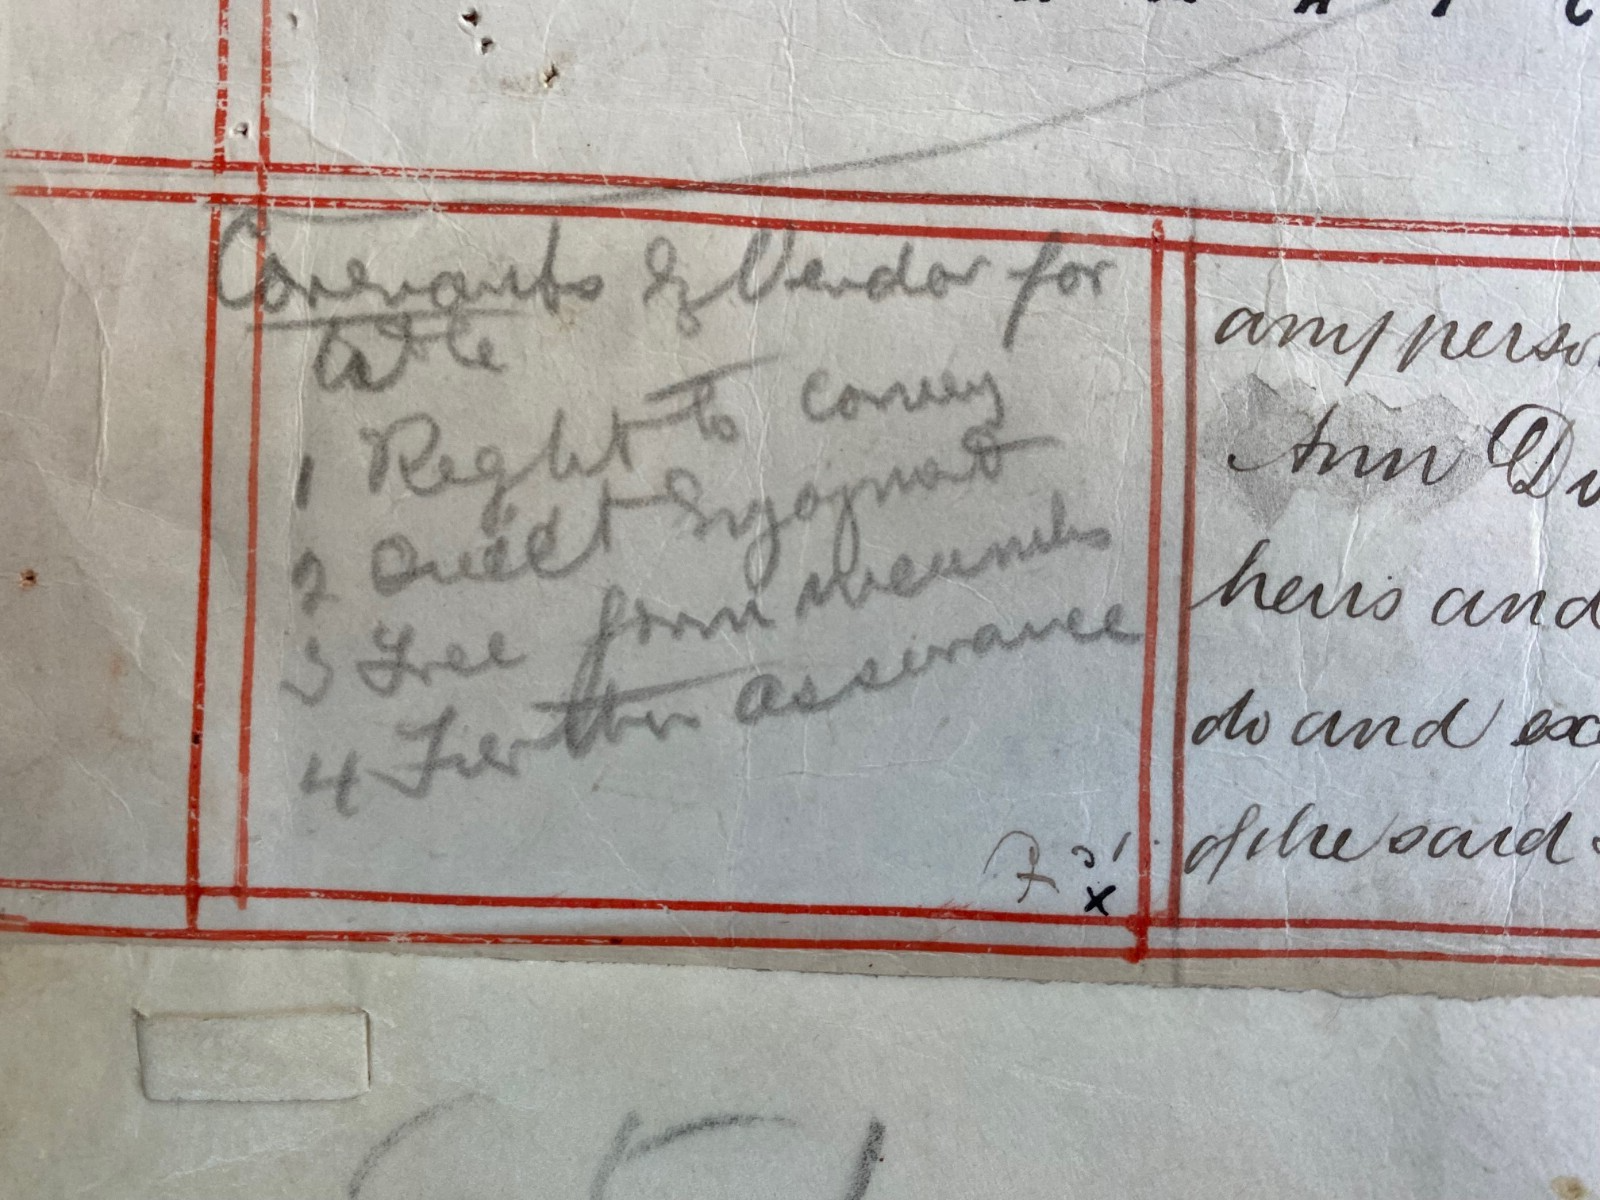 Covenants by Vendor for
title
1 Right to convey
2 Quiet Enjoyment
3 Free from incumbs
4 Further assurance
any perso
Ann
heirs and
do and exe
of the said
x